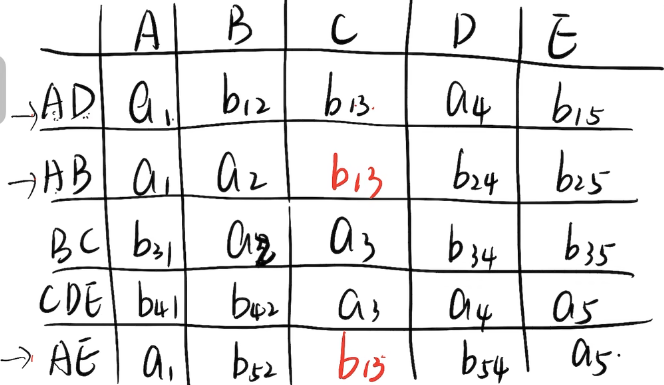 A B C D E
→AD a₁ b₁₂ b₁₃ a₄ b₁₅
→AB a₁ a₂ b₁₃ b₂₄ b₂₅
BC b₃₁ a₂ a₃ b₃₄ b₃₅
CDE b₄₁ b₄₂ a₃ a₄ a₅
→AE a₁ b₅₂ b₁₃ b₅₄ a₅